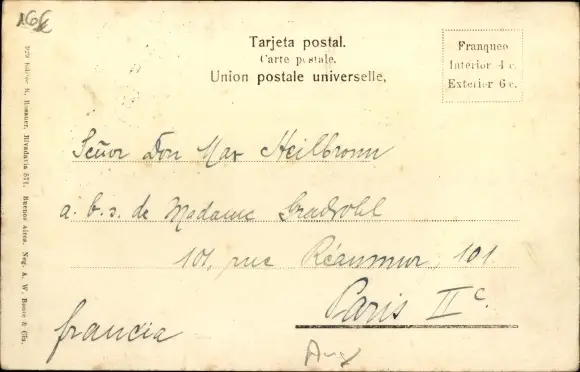 166
Tarjeta postal.
Carte postale.
Union postale universelle,
Franqueo
Interior 4 c.
Exterior 6 c.
Señor Don Max Heilbronn
a. b. s. de Madame Bradvohl
101, rue Réaumur, 101
Paris IIe.
Francia
Editor R. Rosauer, Rivadavia 571, Buenos Aires. Neg. A. W. Boote & Cia.